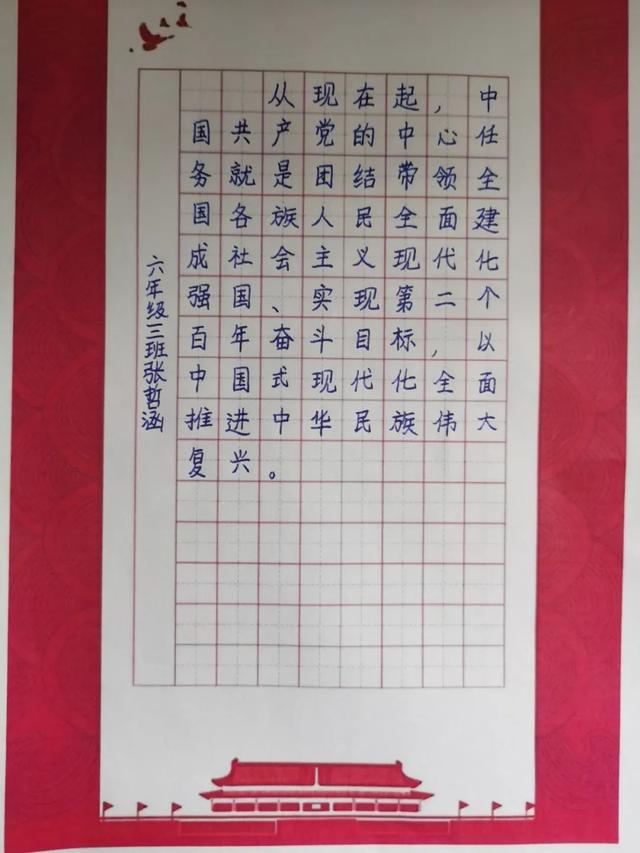 从现在起，中
国共产党的中心任
务就是团结带领全
国各族人民全面建
成社会主义现代化
强国、实现第二个
百年奋斗目标，以
中国式现代化全面
推进中华民族伟大
复兴。
六年级三班张哲涵